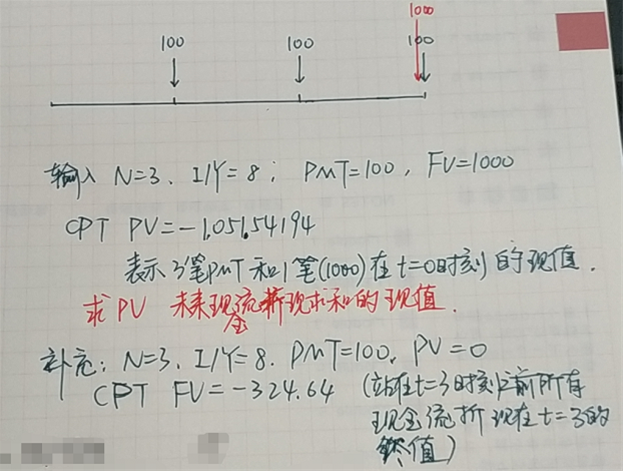 1000
100 100 100
输入 N=3、I/Y=8; PMT=100, FV=1000
CPT PV=-1,051.54194
表示3笔PMT和1笔(1000)在t=0时刻的现值.
求PV 未来现金流折现求和的现值.
补充: N=3. I/Y=8. PMT=100, PV=0
CPT FV=-324.64 (站在t=3时刻之前所有
现金流折现在t=3的
终值)